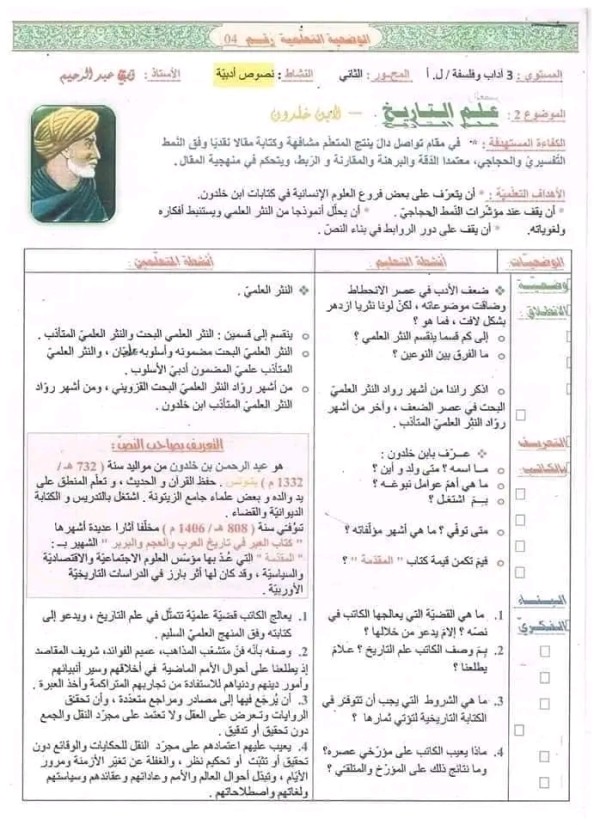 الوضعية التعلمية رقم 04
المستوى : 3 آداب وفلسفة / ل. أ المحور : الثاني النشاط : نصوص أدبيّة الأستاذ : عبد الرحيم
الموضوع 2 : علم التاريخ – لابن خلدون
الكفاءة المستهدفة : * في مقام تواصل دالّ ينتج المتعلّم مشافهة وكتابة مقالا نقديّا وفق النّمط
التّفسيريّ والحجاجي، معتمدا الدّقة والبرهنة والمقارنة و الرّبط، ويتحكم في منهجية المقال .
الأهداف التعلميّة : * أن يتعرّف على بعض فروع العلوم الإنسانية في كتابات ابن خلدون.
* أن يقف عند مؤشّرات النّمط الحجاجيّ . * أن يحلّل أنموذجا من النثر العلمي ويستنبط أفكاره
ولغوياته. * أن يقف على دور الروابط في بناء النصّ .
الوضعيات أنشطة التعليم أنشطة المتعلمين
وضعية
الانطلاق:
ضعف الأدب في عصر الانحطاط
وضاقت موضوعاته ، لكنّ لونا نثريا ازدهر
بشكل لافت ، فما هو ؟
إلى كم قسما ينقسم النثر العلمي ؟
ما الفرق بين النوعين ؟
اذكر رائدا من أشهر رواد النثر العلميّ
البحت في عصر الضعف ، وآخر من أشهر
روّاد النثر العلميّ المتأدّب .
النثر العلميّ .
ينقسم إلى قسمين : النثر العلمي البحت والنثر العلميّ المتأدّب .
النثر العلميّ البحت مضمونه وأسلوبه علميّان ، والنثر العلميّ
المتأدّب علميّ المضمون أدبيّ الأسلوب .
من أشهر روّاد النثر العلميّ البحت القزويني ، ومن أشهر روّاد
النثر العلميّ المتأدّب ابن خلدون .
التعريف
بالكاتب
عـرّف بابن خلدون :
ما اسمه ؟ متى ولد و أين ؟
ما هي أهمّ عوامل نبوغه ؟
بـمَ اشتغل ؟
متى توفّي ؟ ما هي أشهر مؤلّفاته ؟
فيمَ تكمن قيمة كتاب " المقدّمة " ؟
التعريف بصاحب النصّ:
هو عبد الرحمن بن خلدون من مواليد سنة ( 732 هـ/
1332 م ) بتونس . حفظ القرآن و الحديث ، و تعلّم المنطق على
يد والده و بعض علماء جامع الزيتونة . اشتغل بالتدريس و الكتابة
الديوانيّة والقضاء .
توفّي سنة ( 808 هـ/ 1406 م ) مخلّفا آثارا عديدة أشهرها
" كتاب العبر في تاريخ العرب والعجم والبربر " الشهير بـ :
" المقدّمة " التي عُدّ بها مؤسّس العلوم الاجتماعيّة والاقتصاديّة
والسياسيّة ، وقد كان لها أثر بارز في الدراسات التاريخيّة
الأوربيّة .
البناء
الفكري
1. ما هي القضيّة التي يعالجها الكاتب في
نصّه ؟ إلامَ يدعو من خلالها ؟
2. بـمَ وصف الكاتب علم التاريخ ؟ عـلامَ
يطلعنا ؟
3. ما هي الشروط التي يجب أن تتوفّر في
الكتابة التاريخية لتؤتي ثمارها ؟
4. ماذا يعيب الكاتب على مؤرّخي عصره؟
وما نتائج ذلك على المؤرّخ والمتلقي ؟
1. يعالج الكاتب قضيّة علميّة تتمثّل في علم التاريخ ، ويدعو إلى
كتابته وفق المنهج العلميّ السليم .
2. وصفه بأنّه فنّ متشعّب المذاهب، عميم الفوائد، شريف المقاصد
إذ يطلعنا على أحوال الأمم الماضية في أخلاقهم وسير أنبيائهم
وأمور دينهم ودنياهم للاستفادة من تجاربهم المتراكمة وأخذ العبرة .
3. أن يُرجَع فيها إلى مصادر ومراجع متعدّدة ، وأن تحقّق
الروايات وتـعرض على العقل ولا تعتمد على مجرّد النقل والجمع
دون تحقيق أو تدقيق .
4. يعيب عليهم اعتمادهم على مجرّد النقل للحكايات والوقائع دون
تحقيق أو تثبّت أو تحكيم نظر ، والغفلة عن تغيّر الأزمنة ومرور
الأيّام ، وتبدّل أحوال العالم والأمم وعاداتهم وعقائدهم وسياستهم
ولغاتهم واصطلاحاتهم .